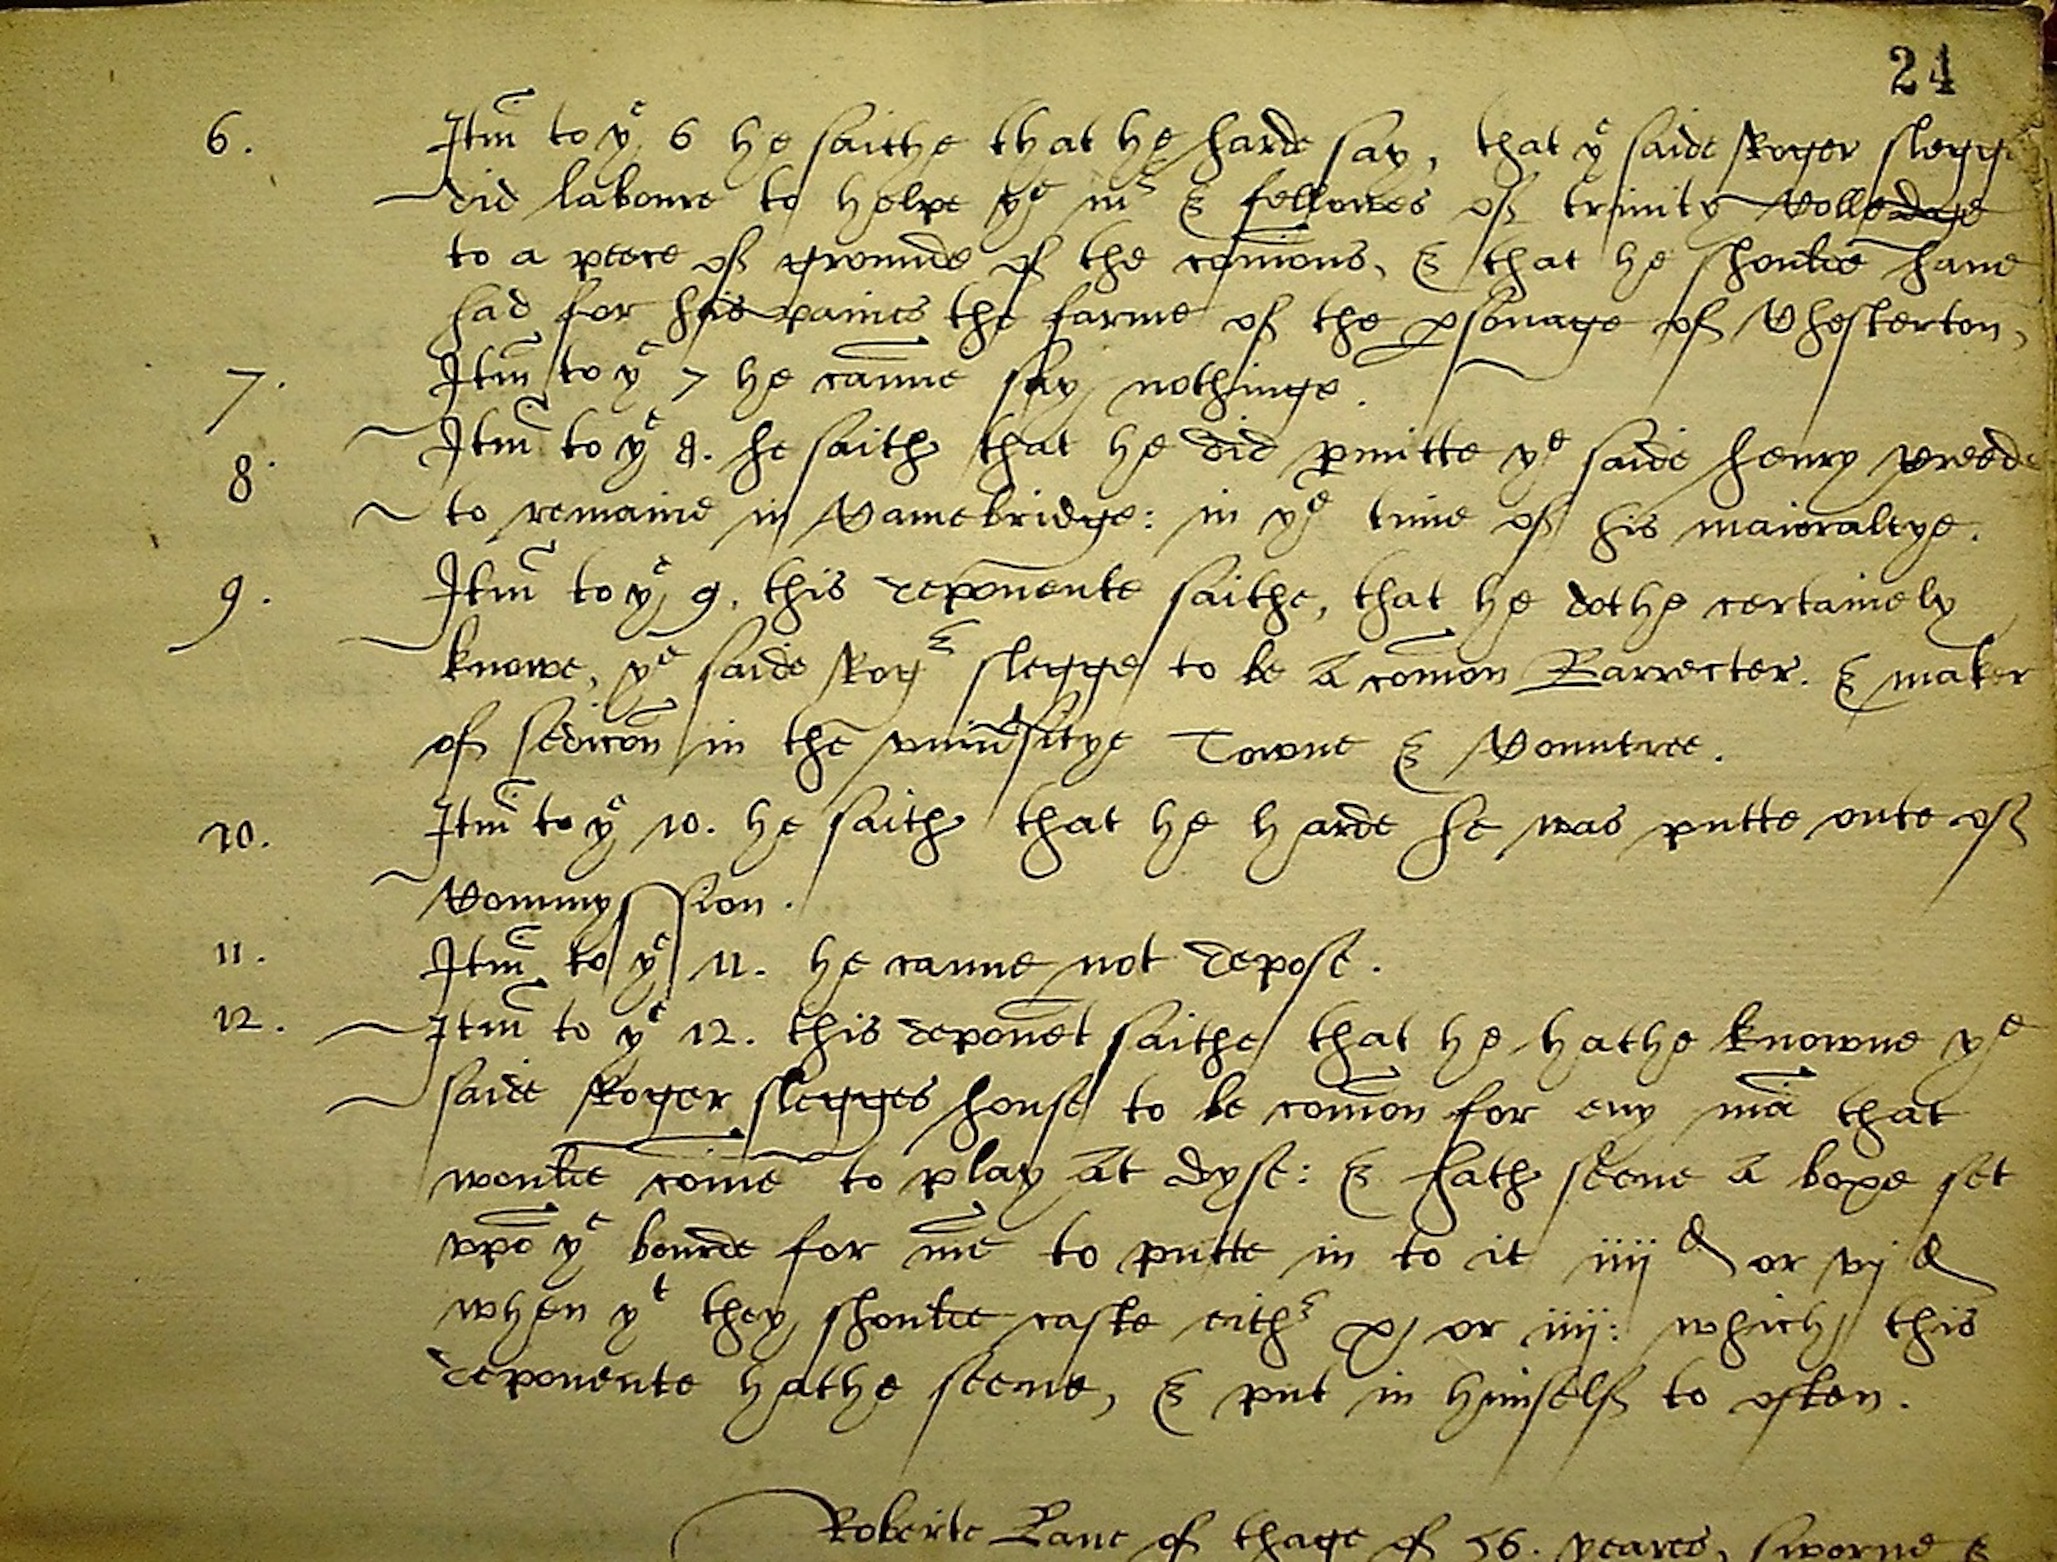 24
6. Itm to ye 6 he saithe that he harde say, that ye saide Roger slegge
did laboure to helpe ye mr & fellowes of trinity Colledge
to a peece of grounde of the comons, & that he shoulde haue
had for his paines the farme of the psonage of Chesterton,
7. Itm to ye 7 he canne say nothinge.
8. Itm to ye 8. he saith that he did pmitte ye saide henry
to remaine in Camebridge: in ye time of his maioraltye.
9. Itm to ye 9. this deponente saithe, that he dothe certainely
knowe, ye saide Rogr slegge to be A comon Barrecter. & maker
of sedicon in the vniusitye Towne & Countree.
10. Itm to ye 10. he saith that he harde he was putte oute of
Commyssion.
11. Itm to ye 11. he canne not depose.
12. Itm to ye 12. this deponet saithe that he hathe knowne ye
saide Roger slegges house to be comon for eny ma that
woulde come to play At dyse: & hath seene A boxe set
vpo ye bourde for me to putte in to it iiij d or vj d
when yt they shoulde caste eithr x or iiij: which this
deponente hathe seene, & put in himself to often.
Roberte Lane of thage of 56. yeares, sworne &